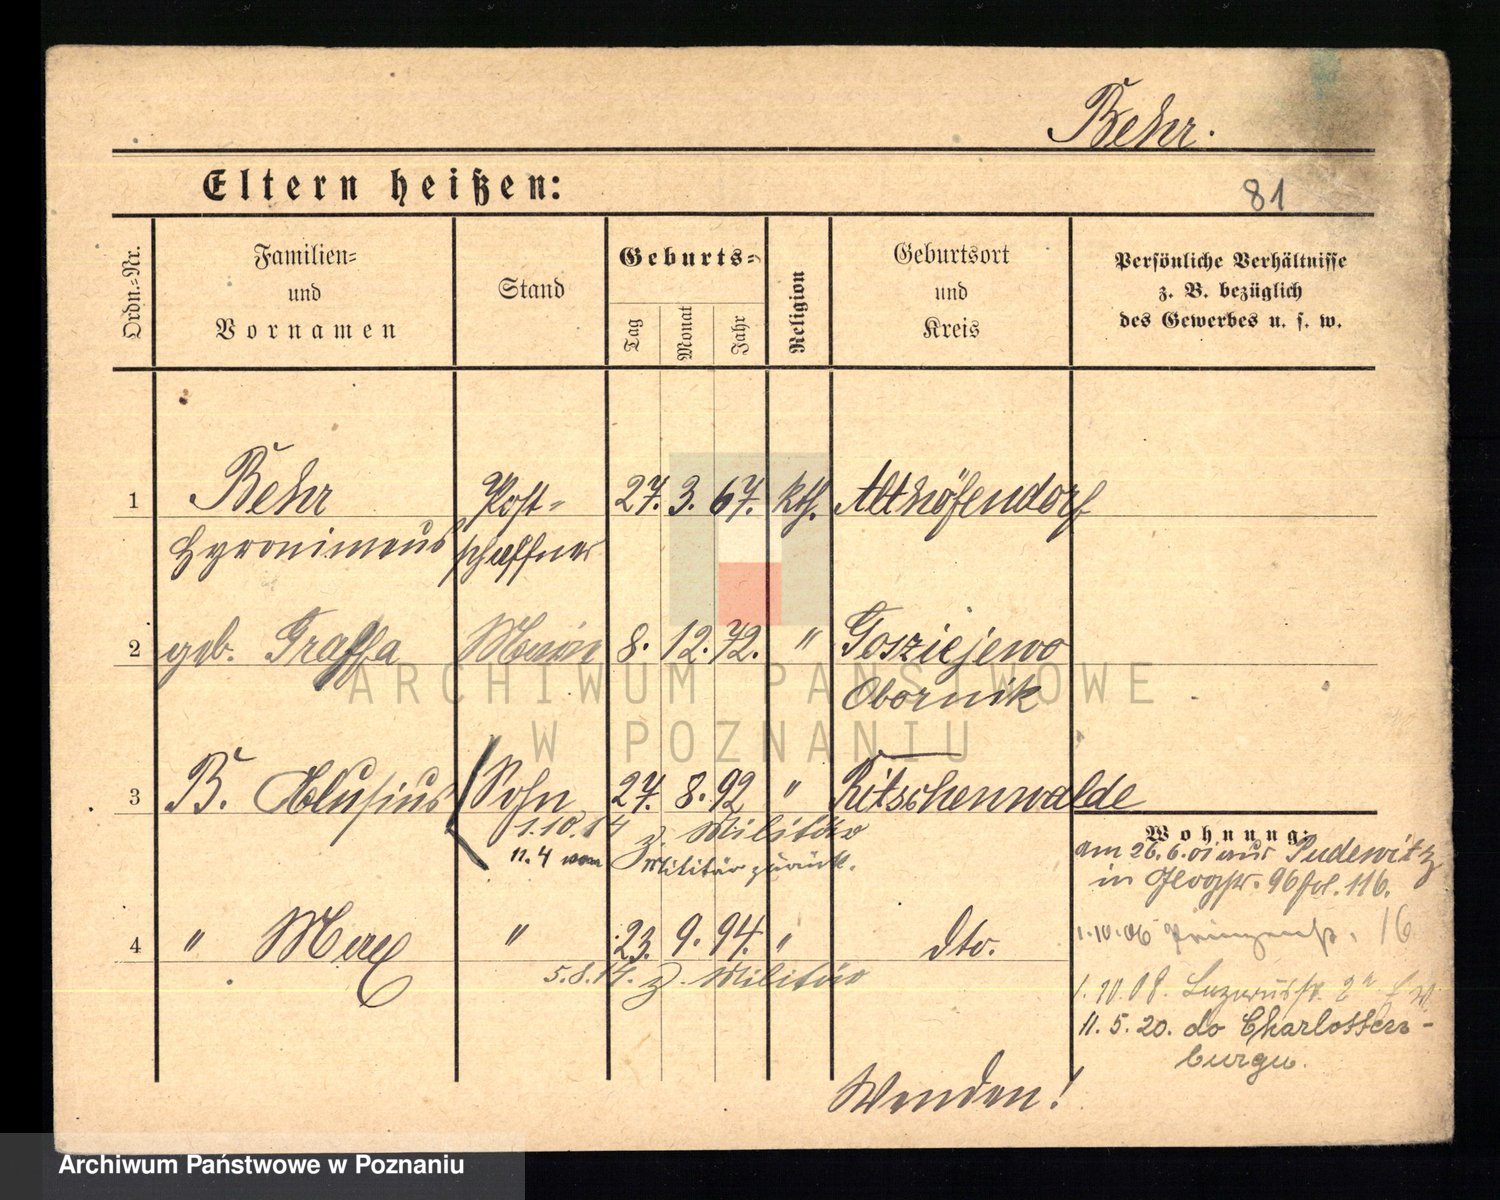 Behr.
Eltern heißen:
81
Ordn.-Nr.
Familien-
und
Vornamen
Stand
Geburts-
Tag
Monat
Jahr
Religion
Geburtsort
und
Kreis
Persönliche Verhältnisse
z. B. bezüglich
des Gewerbes u. s. w.
1 Behr Post- 27. 3. 67. kth. Althöfendorf
Hyronimus schaffner
2 geb. 8. 12. 72. " Gosziejewo
Obornik
3 B. Sohn 27. 8. 92 " Ritschenwalde
1.10.14 z. Militär
11.4 vom Militär zurück.
Wohnung:
am 26.6.01 aus Pudewitz
in 96 fol. 116.
4 " Max " 23. 9. 94. " dto.
5.8.14. z. Militär
1.10.06 16
1.10.08.
11.5.20. do Charlotten-
burgu.
Wenden!
ARCHIWUM PAŃSTWOWE
W POZNANIU
Archiwum Państwowe w Poznaniu